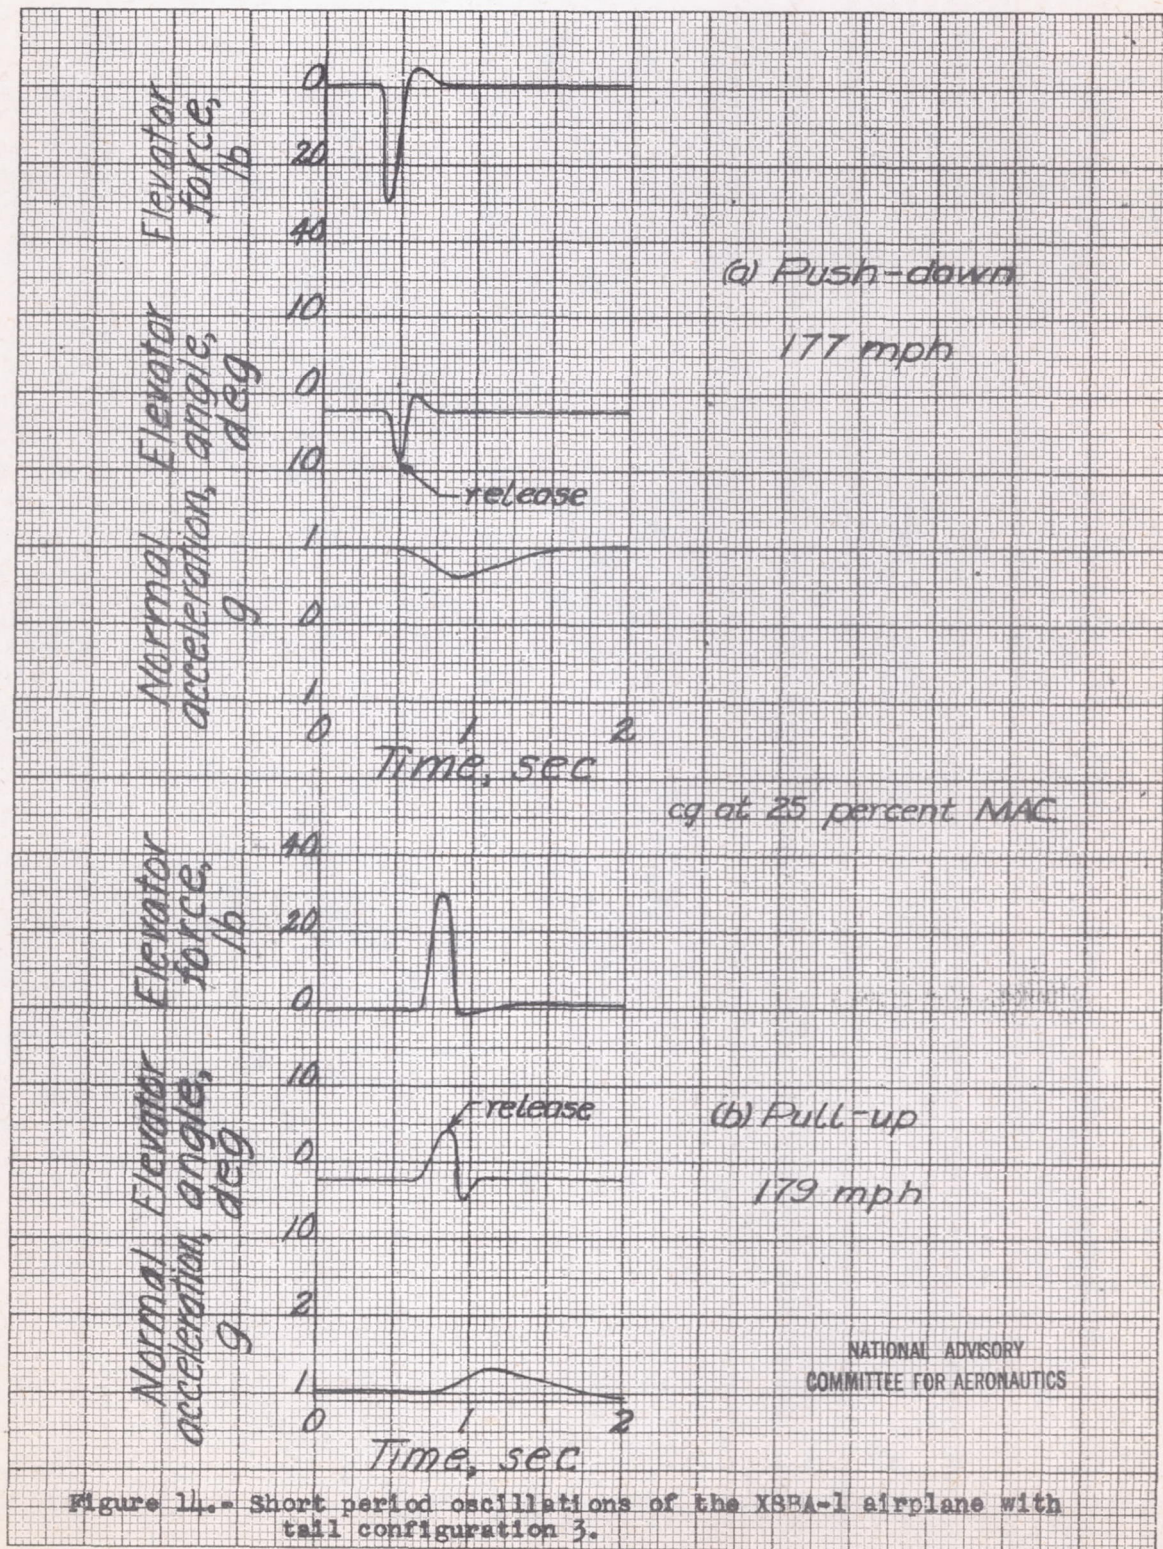 Elevator
force,
lb
0
20
40
(a) Push-down
177 mph
Elevator
angle,
deg
10
0
10
release
Normal
acceleration,
g
1
0
1
0 1 2
Time, sec
cg at 25 percent MAC
Elevator
force,
lb
40
20
0
Elevator
angle,
deg
10
0
10
release
(b) Pull-up
179 mph
Normal
acceleration,
g
2
1
0 1 2
Time, sec
NATIONAL ADVISORY
COMMITTEE FOR AERONAUTICS
Figure 14.- Short period oscillations of the XSBA-1 airplane with
tail configuration 3.